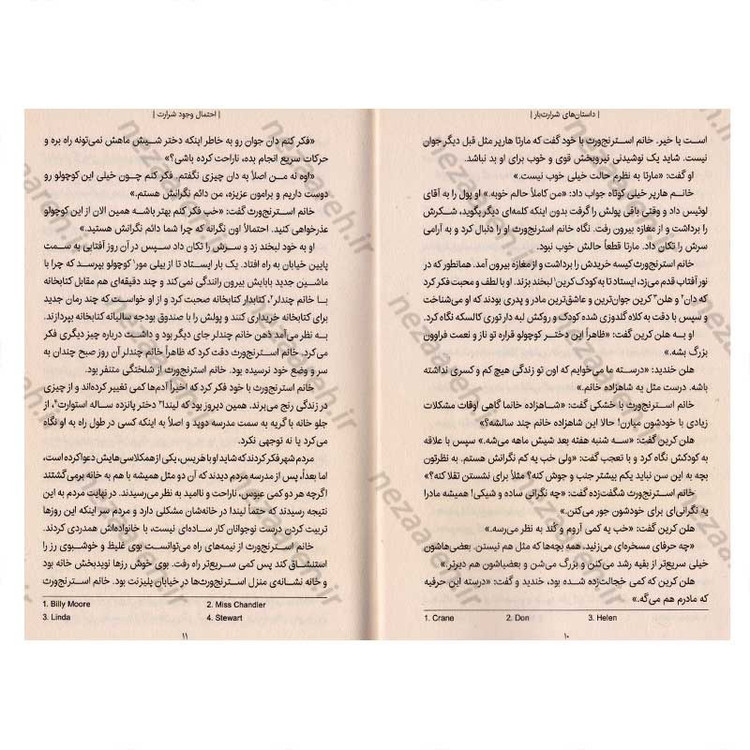 | داستان‌های شرارت‌بار |
است یا خیر. خانم استرنج‌ورث با خود گفت که مارتا هارپر مثل قبل دیگر جوان
نیست. شاید یک نوشیدنی نیروبخش قوی و خوب برای او بد نباشد.
او گفت: «مارتا به نظرم حالت خیلی خوب نیست.»
خانم هارپر خیلی کوتاه جواب داد: «من کاملاً حالم خوبه.» او پول را به آقای
لوئیس داد و وقتی باقی پولش را گرفت بدون اینکه کلمه‌ای دیگر بگوید، شکرش
را برداشت و از مغازه بیرون رفت. نگاه خانم استرنج‌ورث او را دنبال کرد و به آرامی
سرش را تکان داد. مارتا قطعاً حالش خوب نبود.
خانم استرنج‌ورث کیسه خریدش را برداشت و از مغازه بیرون آمد. همانطور که در
نور آفتاب قدم می‌زد، ایستاد تا به کودک کرین۱ لبخند بزند. او با لطف و محبت فکر کرد
که دان۲ و هلن۳ کرین جوان‌ترین و عاشق‌ترین مادر و پدری بودند که او می‌شناخت
و سپس با دقت به کلاه گلدوزی شده کودک و روکش لبه دار توری کالسکه نگاه کرد.
او به هلن کرین گفت: «ظاهراً این دختر کوچولو قراره تو ناز و نعمت فراوون
بزرگ بشه.»
هلن خندید: «درسته ما می‌خوایم که اون تو زندگی هیچ کم و کسری نداشته
باشه. درست مثل یه شاهزاده خانم.»
خانم استرنج‌ورث با خشکی گفت: «شاهزاده خانما گاهی اوقات مشکلات
زیادی با خودشون میارن! حالا این شاهزاده خانم چند سالشه؟»
هلن کرین گفت: «سه شنبه هفته بعد شیش ماهه می‌شه.» سپس با علاقه
به کودکش نگاه کرد و با تعجب گفت: «ولی خب یه کم نگرانش هستم. به نظرتون
بچه به این سن نباید یکم بیشتر جنب و جوش کنه؟ مثلاً برای نشستن تقلا کنه؟»
خانم استرنج‌ورث شگفت‌زده گفت: «چه نگرانی ساده و شیکی! همیشه مادرا
یه نگرانی‌ای برای خودشون جور می‌کنن.»
هلن کرین گفت: «خب یه کمی آروم و کُند به نظر می‌رسه.»
«چه حرفای مسخره‌ای می‌زنید. همه بچه‌ها که مثل هم نیستن. بعضی‌هاشون
خیلی سریع‌تر از بقیه رشد می‌کنن و بزرگ می‌شن و بعضیاشون هم دیرتر.»
هلن کرین که کمی خجالت‌زده شده بود، خندید و گفت: «درسته این حرفیه
که مادرم هم می‌گه.»
1. Crane 2. Don 3. Helen
۱۰
| احتمال وجود شرارت |
«فکر کنم دان جوان رو به خاطر اینکه دختر شیش ماهش نمی‌تونه راه بره و
حرکات سریع انجام بده، ناراحت کرده باشی؟»
«اوه نه من اصلاً به دان چیزی نگفتم. فکر کنم چون خیلی این کوچولو رو
دوست داریم و برامون عزیزه، من دائم نگرانش هستم.»
خانم استرنج‌ورث گفت: «خب فکر کنم بهتر باشه همین الان از این کوچولو
عذرخواهی کنید. احتمالاً اون نگرانه که چرا شما دائم نگرانش هستید.»
او به خود لبخند زد و سرش را تکان داد سپس در آن روز آفتابی به سمت
پایین خیابان به راه افتاد. یک بار ایستاد تا از بیلی مور۱ کوچولو بپرسد که چرا با
ماشین جدید بابایش بیرون رانندگی نمی‌کند و چند دقیقه‌ای هم مقابل کتابخانه
با خانم چندلر۲، کتابدار کتابخانه صحبت کرد و از او خواست که چند رمان جدید
برای کتابخانه خریداری کنند و پولش را با صندوق بودجه سالیانه کتابخانه بپردازند.
به نظر می‌آمد ذهن خانم چندلر جای دیگر بود و داشت درباره چیز دیگری فکر
می‌کرد. خانم استرنج‌ورث دقت کرد که ظاهراً خانم چندلر آن روز صبح چندان به
سر و وضع خود نرسیده بود. خانم استرنج‌ورث از شلختگی متنفر بود.
خانم استرنج‌ورث با خود فکر کرد که اخیراً آدم‌ها کمی تغییر کرده‌اند و از چیزی
در زندگی رنج می‌برند. همین دیروز بود که لیندا۳ دختر پانزده ساله استوارت۴، از
جلو خانه با گریه به سمت مدرسه دوید و اصلاً به اینکه کسی در طول راه به او نگاه
می‌کرد یا نه توجهی نکرد.
مردم شهر فکر کردند که شاید او با هریس، یکی از همکلاسی‌هایش دعوا کرده است،
اما بعداً، پس از مدرسه مردم دیدند که آن دو مثل همیشه با هم به خانه برمی‌گشتند
اگرچه هر دو کمی عبوس، ناراحت و ناامید به نظر می‌رسیدند. در نهایت مردم به این
نتیجه رسیدند که حتماً لیندا در خانه‌شان مشکلی دارد و مردم سر اینکه این روزها
تربیت کردن درست نوجوانان کار ساده‌ای نیست، با خانواده‌اش همدردی کردند.
خانم استرنج‌ورث از نیمه‌های راه می‌توانست بوی غلیظ و خوشبوی رز را
استنشاق کند پس کمی سریع‌تر راه رفت. بوی خوش رزها نویدبخش خانه بود
و خانه نشانه‌ی منزل استرنج‌ورث‌ها در خیابان پلیزنت بود. خانم استرنج‌ورث
1. Billy Moore 2. Miss Chandler
3. Linda 4. Stewart
۱۱
nezaareh.ir